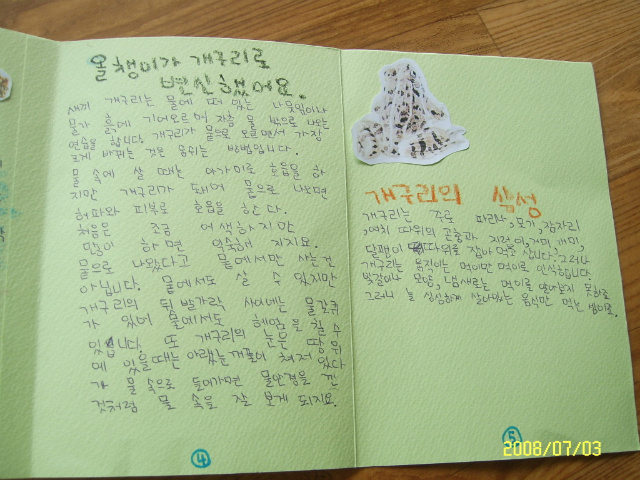 올챙이가 개구리로
변신했어요.
새끼 개구리는 물에 떠 있는 나뭇잎이나
물가 흙에 기어오르며 자주 물 밖으로 나오는
연습을 합니다. 개구리가 물으로 오르면서 가장
크게 바뀌는 것은 숨쉬는 방법입니다.
물 속에 살 때는 아가미로 호흡을 하
지만 개구리가 되어 뭍으로 나오면
허파와 피부로 호흡을 한다.
처음은 조금 어색하지만
많이 하면 익숙해 지지요.
뭍으로 나왔다고 뭍에서만 사는건
아닙니다. 물에서도 살 수 있지만
개구리의 뒷 발가락 사이에는 물갈퀴
가 있어 물에서도 헤엄을 칠 수
있습니다. 또 개구리의 눈은 땅 위
에 있을때는 아랫눈꺼풀이 쳐져 있다
가 물 속으로 들어가면 물안경을 낀
것처럼 물 속을 잘 보게 되지요.
④
개구리의 식성
개구리는 주로 파리, 모기, 잠자리
, 여치 따위의 곤충과 지렁이, 거미, 개미,
달팽이 따위를 잡아 먹고 삽니다. 그러나
개구리는 움직이는 먹이만 먹이로 인식합니다.
빛깔이나 모양, 냄새로는 먹이를 알아보지 못하죠
그러니 늘 싱싱하게 살아있는 음식만 먹는 셈이죠.
⑤
2008/07/03